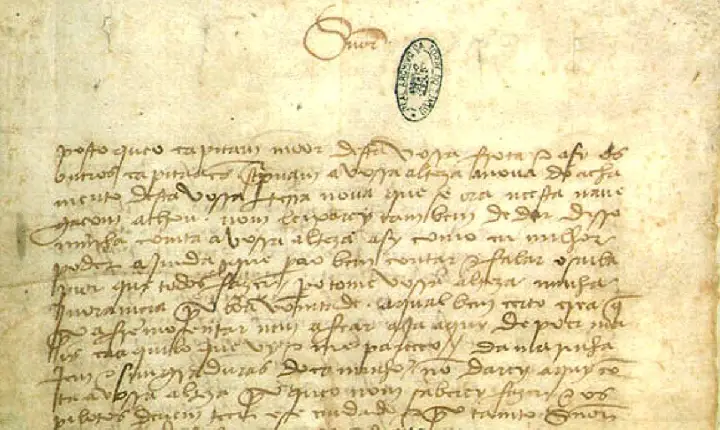 Snõr
REAL ARCHIVO DA TORRE DO TOMBO
posto queo capitam moor desta vossa frota e asy os
outros capitaães screpuam avossa alteza anoua do acha
mento desta vossa terra noua que se ora neesta naue
gaçom achou. nom leixarey tambem dedar disso
minha comta avossa alteza asy como eu milhor
poder ajmda que pera o bem contar e falar o saiba
pior que todos fazer. pero tome vossa alteza minha
jnoramçia por boa vomtade. aqual bem çerto crea q̃
por afremosentar nem afear aja aquy de poer ma
is caaquilo que vy e me pareçeo / da marinha
jem e simgraduras do caminho nõ darey aquy cõ
ta avossa alteza por queo nom saberey fazer e os
pilotos deuem teer ese cuidado e por tanto Snõr